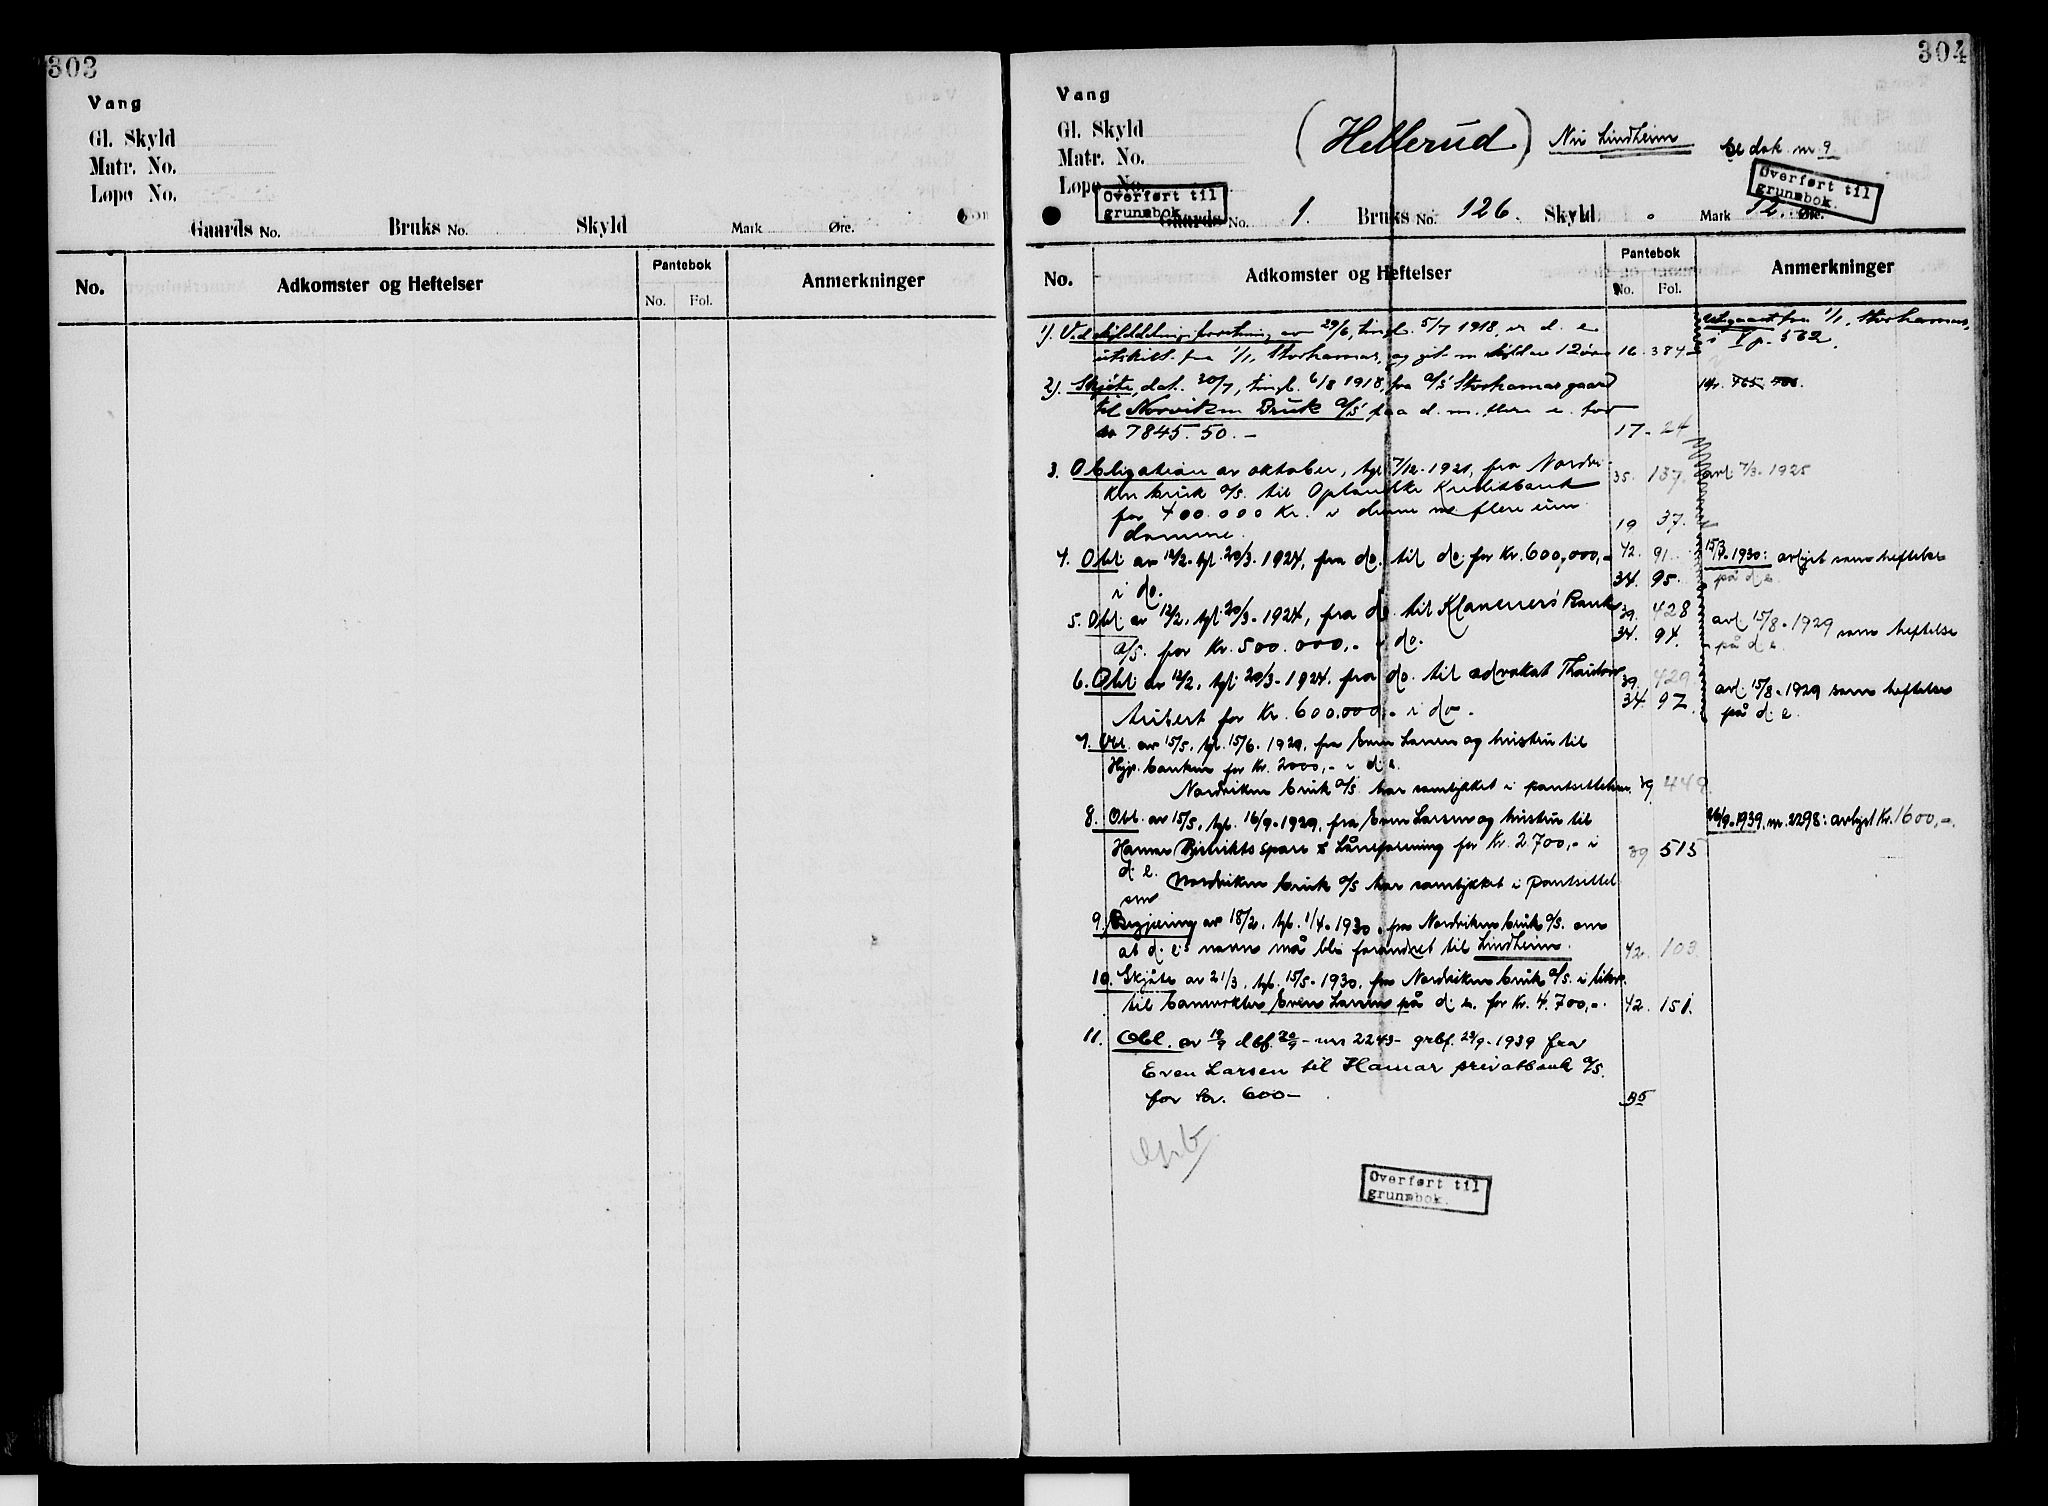 303
Vang
Gl. Skyld
Matr. No.
Løpe No.
Gaards No. Bruks No. Skyld Mark Øre.
No. Adkomster og Heftelser Pantebok Anmerkninger
No. Fol.
304
Vang
Gl. Skyld
Matr. No.
Løpe No.
(Hellerud) Nu Lindheim
dok. nr. 9
Overført til
grunnbok.
Overført til
grunnbok.
Gaards No. 1. Bruks No. 126. Skyld Mark 12. Øre.
No. Adkomster og Heftelser Pantebok Anmerkninger
No. Fol.
1). Ved skylddelingsforretning av 29/6, tingl. 5/7 1918, er d. e. utgaaet fra 1/1, Storhamar,
utskilt fra 1/1, Storhamar, og git en skyld av 12 øre 16. 384 i I p. 562.
2). Skjøte, dat. 30/7, tingl. 6/8 1918, fra A/S Storhamar gaard
til Norviken Bruk A/S paa d. m. flere e. for
kr 7845.50.- 17. 24
3. Obligation av oktober, tgl. 7/12. 1921, fra Nordvi- 35. 137. avl. 7/3. 1925
ken bruk A/S. til Oplandske Kreditbank
for 400.000 Kr. i denne m flere eien
domme. 19 37.
4. Obl. av 12/2. tgl. 20/3. 1924, fra do. til do. for Kr. 600,000,- 42. 91. 15/3. 1930: avlyst som heftelse
i do. 34. 95. på d. e.
5. Obl. av 12/2. tgl. 20/3. 1924, fra do. til Klaveness Bank 39. 428 avl. 15/8. 1929 som heftelse
A/S. for Kr. 500.000,- i do. 34. 94. på d. e.
6. Obl. av 12/2. tgl. 20/3. 1924. fra do. til advokat 39. 429 avl. 15/8. 1929 som heftelse
for Kr. 600.000,- i do. 34. 97. på d. e.
7. Obl. av 15/5. tgl. 15/6. 1929. fra Even Larsen og hustru til
Hyp. banken for Kr. 2000,- i d. e.
Nordviken bruk A/S. har samtykket i pantsettelsen. 39 449.
8. Obl. av 15/5. tgl. 16/9. 1929. fra Even Larsen og hustru til 26/9. 1939. nr. 2298: avlyst Kr. 1600,-.
Hamar Distrikts spare & låneforening for Kr. 2700,- i 39 515
d. e. Nordviken bruk A/S har samtykket i pantsettel
sen
9. Begjæring av 18/2. tgl. 1/4. 1930. fra Nordviken bruk A/S. om
at d. e's navn må bli forandret til Lindheim. 42. 103.
10. Skjøte av 21/3. tgl. 15/5. 1930. fra Nordviken bruk A/S. i likv.
til banevokter Even Larsen på d. e. for Kr. 4.700,-. 42. 151.
11. Obl. av 19/9 dbf. 20/9 - nr 2243- grbf. 23/9. 1939 fra
Even Larsen til Hamar privatbank A/S.
for kr. 600- B5
Overført til
grunnbok.